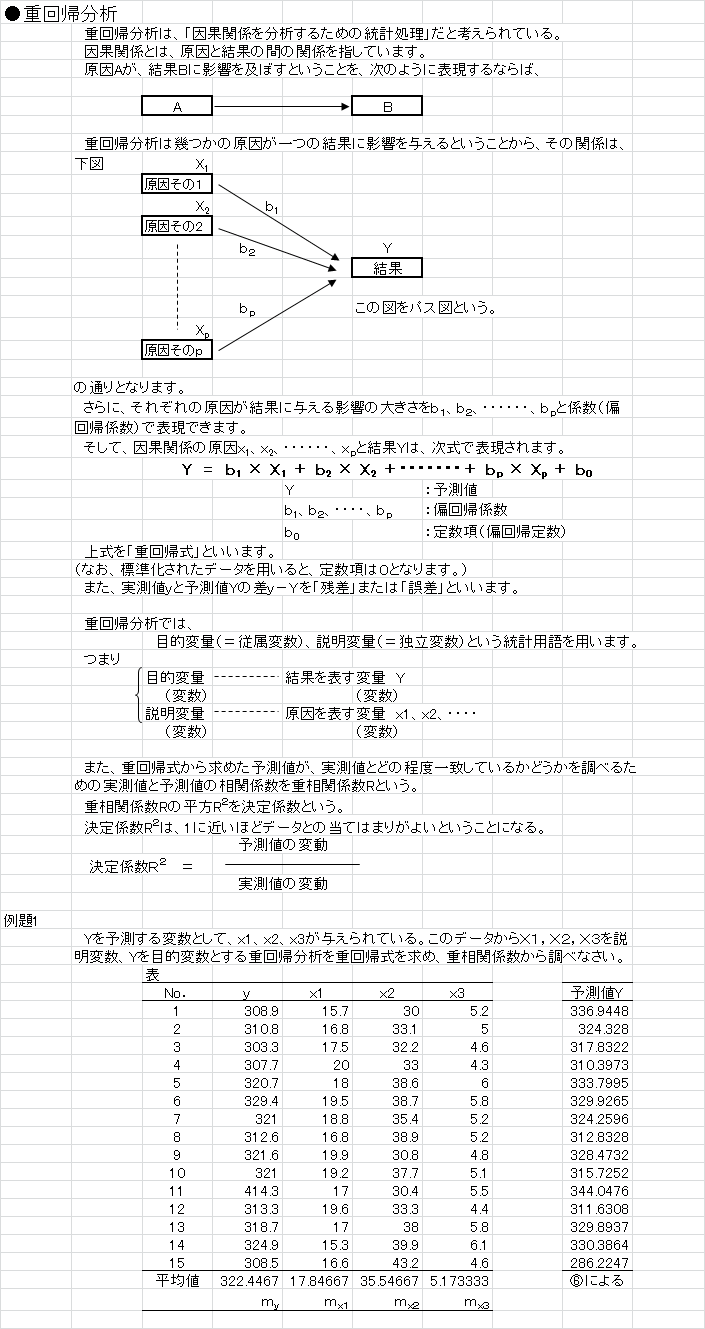 ●重回帰分析
重回帰分析は、「因果関係を分析するための統計処理」だと考えられている。
因果関係とは、原因と結果の間の関係を指しています。
原因Aが、結果Bに影響を及ぼすということを、次のように表現するならば、
A B
重回帰分析は幾つかの原因が一つの結果に影響を与えるということから、その関係は、
下図 X1
原因その1
b1
X2
原因その2
b2
Y
結果
bp
この図をパス図という。
Xp
原因そのp
の通りとなります。
さらに、それぞれの原因が結果に与える影響の大きさをb1、b2、・・・・・・、bpと係数(偏
回帰係数)で表現できます。
そして、因果関係の原因x1、x2、・・・・・・、xpと結果Yは、次式で表現されます。
Y = b1 × X1 + b2 × X2 +・・・・・・・+ bp × Xp + b0
Y :予測値
b1、b2、・・・・、bp :偏回帰係数
b0 :定数項(偏回帰定数)
上式を「重回帰式」といいます。
(なお、標準化されたデータを用いると、定数項は0となります。)
また、実測値yと予測値Yの差y-Yを「残差」または「誤差」といいます。
重回帰分析では、
目的変量(=従属変数)、説明変量(=独立変数)という統計用語を用います。
つまり
目的変量 ---------- 結果を表す変量 Y
(変数) (変数)
説明変量 ---------- 原因を表す変量 x1、x2、・・・・
(変数) (変数)
また、重回帰式から求めた予測値が、実測値とどの程度一致しているかどうかを調べるた
めの実測値と予測値の相関係数を重相関係数Rという。
重相関係数Rの平方R2を決定係数という。
決定係数R2は、1に近いほどデータとの当てはまりがよいということになる。
予測値の変動
決定係数R2 =
実測値の変動
例題1
Yを予測する変数として、x1、x2、x3が与えられている。このデータからX1,X2,X3を説
明変数、Yを目的変数とする重回帰分析を重回帰式を求め、重相関係数から調べなさい。
表
No. y x1 x2 x3 予測値Y
1 308.9 15.7 30 5.2 336.9448
2 310.8 16.8 33.1 5 324.328
3 303.3 17.5 32.2 4.6 317.8322
4 307.7 20 33 4.3 310.3973
5 320.7 18 38.6 6 333.7995
6 329.4 19.5 38.7 5.8 329.9265
7 321 18.8 35.4 5.2 324.2596
8 312.6 16.8 38.9 5.2 312.8328
9 321.6 19.9 30.8 4.8 328.4732
10 321 19.2 37.7 5.1 315.7252
11 414.3 17 30.4 5.5 344.0476
12 313.3 19.6 33.3 4.4 311.6308
13 318.7 17 38 5.8 329.8937
14 324.9 15.3 39.9 6.1 330.3864
15 308.5 16.6 43.2 4.6 286.2247
平均値 322.4467 17.84667 35.54667 5.173333 ⑥による
my mx1 mx2 mx3